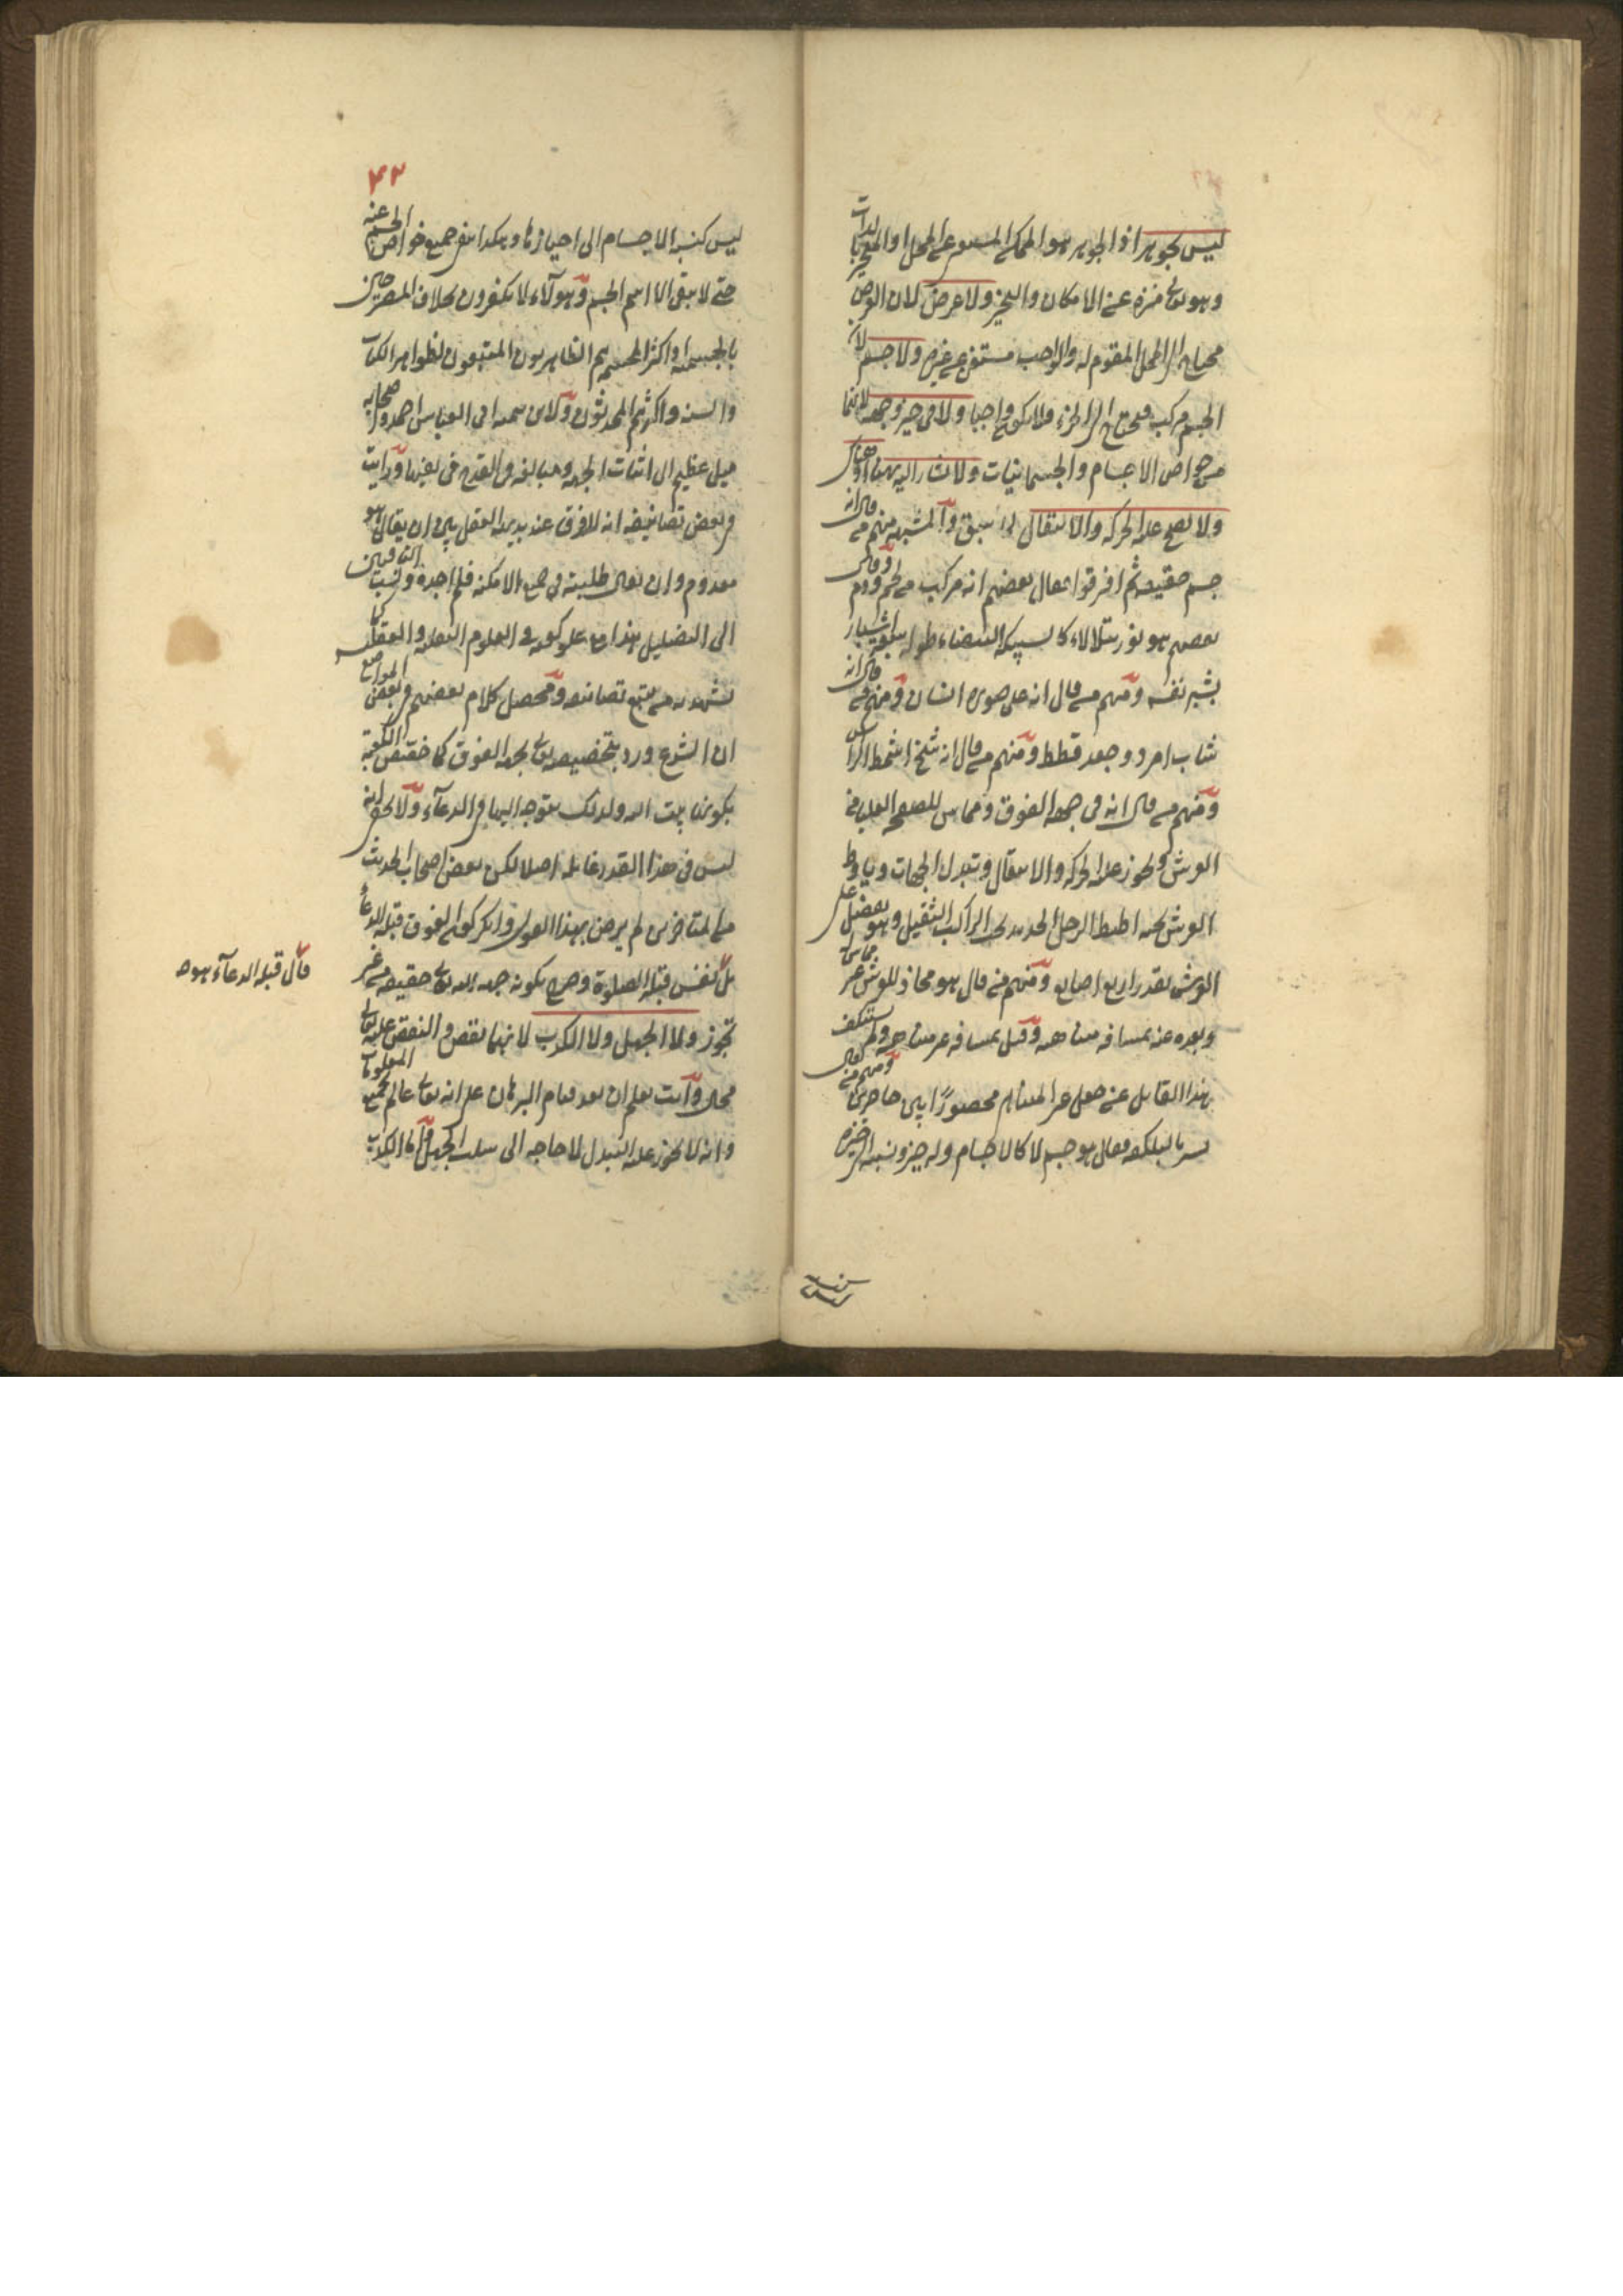 ليس بجوهر اذ الجوهر هو الممكن المستغنى عن المحل او المتحيز بالذات
وهو تعالى منزه عن الامكان والتحيز ولا عرض لان العرض
محتاج الى المحل المقوم له والواجب مستغن عن غيره ولا جسم لان
الجسم مركب فيحتاج الى الجزء فلا يكون واجبا ولا فى حيز وجهة لانهما
من خواص الاجسام والجسمانيات ولا يشار اليه بههنا او هناك
ولا يصح عليه الحركة والانتقال لما سبق والمشبهة منهم من قال انه
جسم حقيقة ثم افترقوا فقال بعضهم انه مركب من لحم ودم وقال
بعضهم هو نور يتلالاء كالسبيكة البيضاء طوله سبعة اشبار
بشبر نفسه ومنهم من قال انه على صورة انسان ومنهم من قال انه
شاب امرد جعد قطط ومنهم من قال انه شيخ اشمط الراس
ومنهم من قال انه فى جهة الفوق ومماس للصفحة العليا من
العرش ويجوز عليه الحركة والانتقال وتبدل الجهات وياط
العرش تحته اطيط الرحل الجديد تحت الراكب الثقيل وهو يفضل على
العرش بقدر اربع اصابع ومنهم من قال هو محاذ للعرش غير مماس
وبعده عنه بمسافة متناهية وقيل بمسافة غير متناهية ولم يستنكف
هذا القايل عن جعل غير المتناهى محصورا بين حاصرين ومنهم من
تستر بالبلكفة فقال هو جسم لا كالاجسام وله حيز ونسبته الى حيزه
ليس كنسبة
٤٣
ليس كنسبة الاجسام الى احيازها وهكذا ينفى جميع خواص الجسم عنه
حتى لا يبقى الا اسم الجسم وهولآء لا يكفرون بخلاف المصرحين
بالجسمية واكثر المجسمة هم الظاهريون المتبعون لظواهر الكتاب
والسنة واكثرهم المحدثون ولابن تيمية ابى العباس احمد واصحابه
ميل عظيم الى اثبات الجهة ومبالغة فى القدح فى نفيها ورايت
فى بعض تصانيفه انه لا فرق عند بديهة العقل بين ان يقال هو
معدوم وان يقال طلبته فى جميع الامكنة فلم اجده ونسب النافين
الى التضليل هذا مع علو كعبه فى العلوم النقلية والعقلية كما
يشهد به من يتبع تصانيفه ومحصل كلام بعضهم فى بعض المواضع
ان الشرع ورد بتخصيصه تعالى بجهة الفوق كما خصص الكعبة
بكونها بيت الله ولذلك يتوجه اليها فى الدعآء ولا يخفى انه
ليس فى هذا القدر غايلة اصلا لكن بعض اصحاب الحديث
من المتاخرين لم يرض بهذا القول وانكر كون الفوق قبلة الدعاء
بل قال قبلة الدعآء هو
نفس قبلة الصلوة وصرح بكونه جهة الله تعالى حقيقة من غير
تجوز ولا الجهل ولا الكذب لانهما نقص والنقص عليه تعالى
محال وانت تعلم ان بعد قيام البرهان على انه تعالى عالم بجميع المعلومات
وانه لا يجوز عليه التبدل لا حاجة الى سلب الجهل واما الكذب